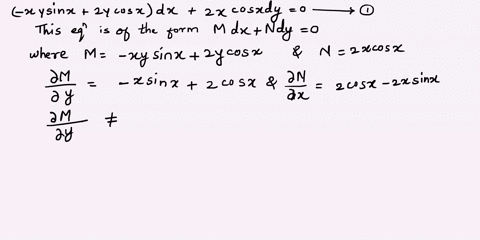 (-xysinx + 2ycosx)dx + 2x cosxdy = 0 ⟶ ①
This eqⁿ is of the form Mdx + Ndy = 0
where M = -xy sinx + 2y cosx & N = 2xcosx
∂M/∂y = -x sinx + 2 cosx & ∂N/∂x = 2cosx - 2x sinx
∂M/∂y ≠